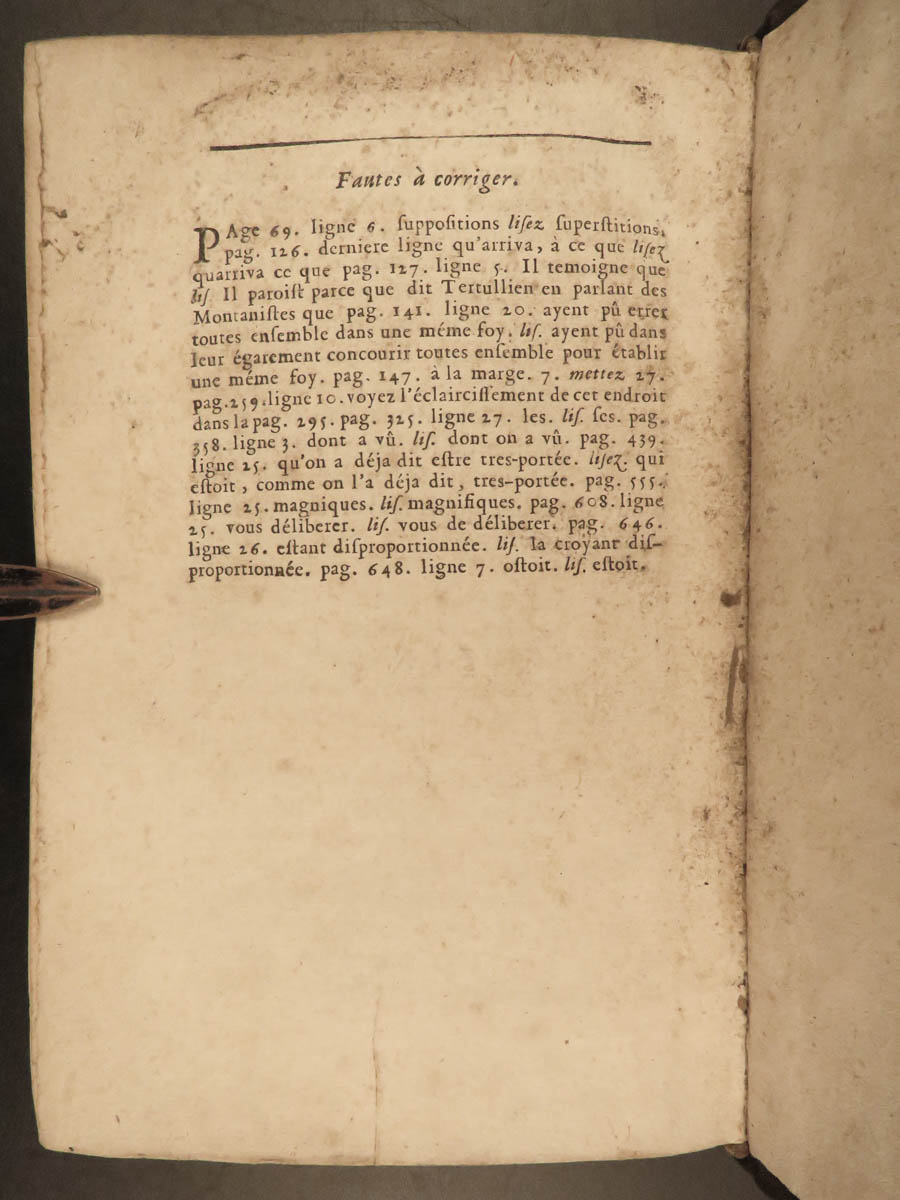 Fautes à corriger.
PAge 69. ligne 6. ſuppoſitions liſez ſuperſtitions.
pag. 126. derniere ligne qu'arriva, à ce que liſez
quarriva ce que pag. 127. ligne 5. Il temoigne que
liſ. Il paroiſt parce que dit Tertullien en parlant des
Montaniſtes que pag. 141. ligne 20. ayent pû errer
toutes enſemble dans une méme foy. liſ. ayent pû dans
leur égarement concourir toutes enſemble pour établir
une méme foy. pag. 147. à la marge. 7. mettez 27.
pag. 259. ligne 10. voyez l'éclairciſſement de cet endroit
dans la pag. 295. pag. 325. ligne 27. les. liſ. ſes. pag.
358. ligne 3. dont a vû. liſ. dont on a vû. pag. 439.
ligne 25. qu'on a déja dit eſtre tres-portée. liſez. qui
eſtoit, comme on l'a déja dit, tres-portée. pag. 555.
ligne 25. magniques. liſ. magnifiques. pag. 608. ligne
25. vous déliberer. liſ. vous de déliberer. pag. 646.
ligne 26. eſtant diſproportionnée. liſ. la croyant diſ-
proportionnée. pag. 648. ligne 7. oſtoit. liſ. eſtoit.